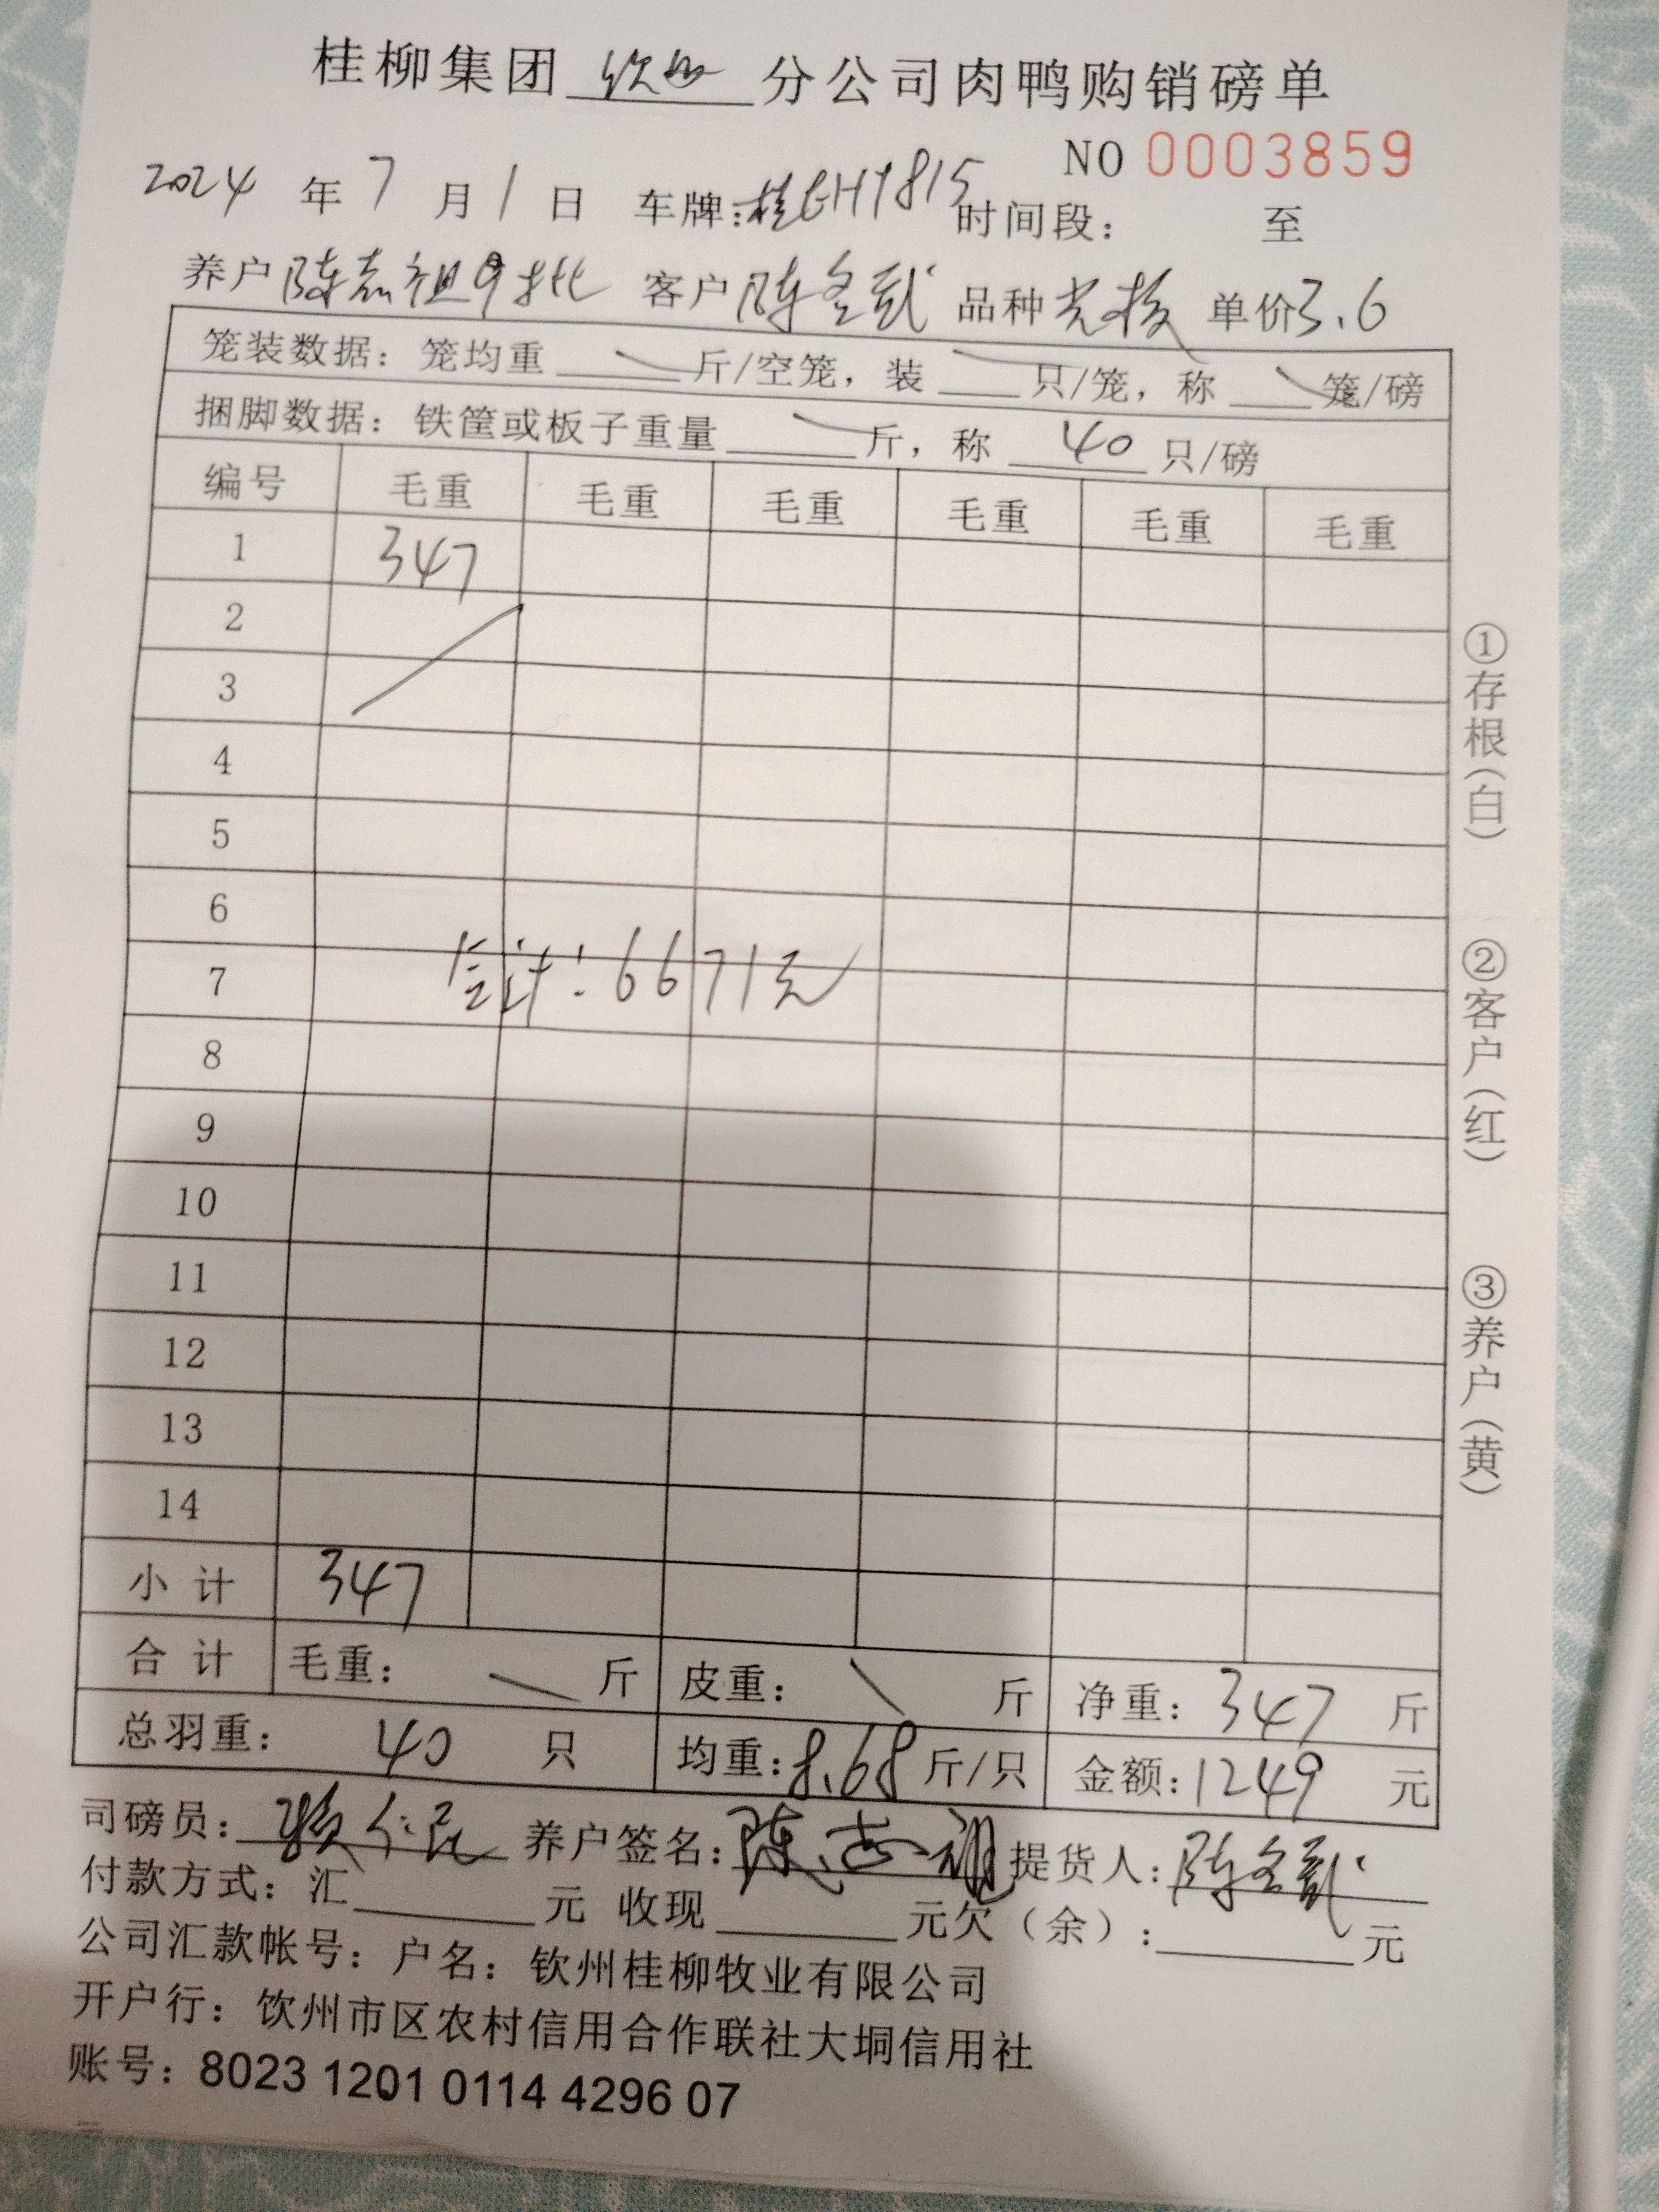 桂柳集团 钦州 分公司肉鸭购销磅单
NO 0003859
2024 年 7 月 1 日 车牌:桂EH1815 时间段: 至
养户 陈志祖9批 客户 陈冬 品种 单价3.6
笼装数据: 笼均重 斤/空笼, 装 只/笼, 称 笼/磅
捆脚数据: 铁筐或板子重量 斤, 称 40 只/磅
编号 毛重 毛重 毛重 毛重 毛重 毛重
1 347
2
3
4
5
6
7 合计: 6671元
8
9
10
11
12
13
14
小计 347
合计 毛重: 斤 皮重: 斤 净重: 347 斤
总羽重: 40 只 均重: 8.68 斤/只 金额: 1249 元
司磅员: 养户签名: 陈志祖 提货人: 陈冬
付款方式: 汇 元 收现 元欠(余): 元
公司汇款帐号: 户名: 钦州桂柳牧业有限公司
开户行: 饮州市区农村信用合作联社大垌信用社
账号: 8023 1201 0114 4296 07
①存根(白) ②客户(红) ③养户(黄)